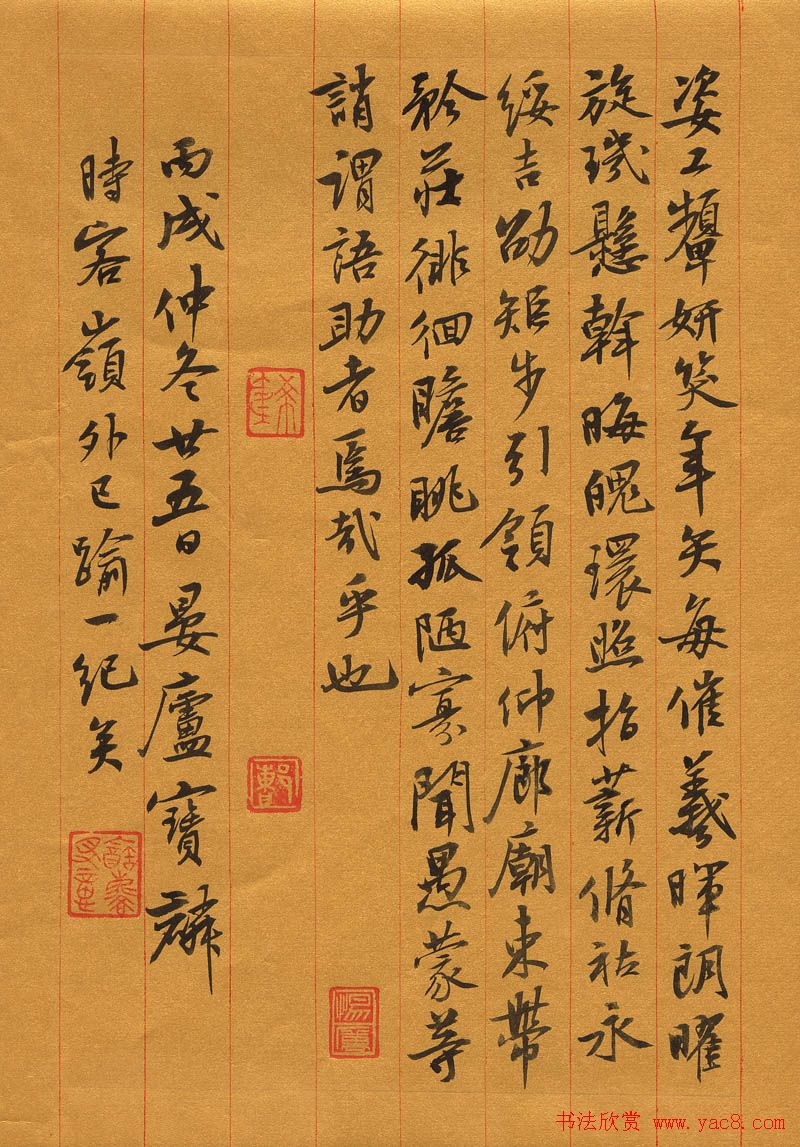 姿工顰妍笑年矢每催羲暉朗曜
旋璣懸斡晦魄環照指薪脩祜永
綏吉劭矩步引領俯仰廊廟束帶
矜莊徘徊瞻眺孤陋寡聞愚蒙等
誚謂語助者焉哉乎也
丙戌仲冬廿五日晏廬寶
時客嶺外已踰一紀矣
书法欣赏 www.yac8.com